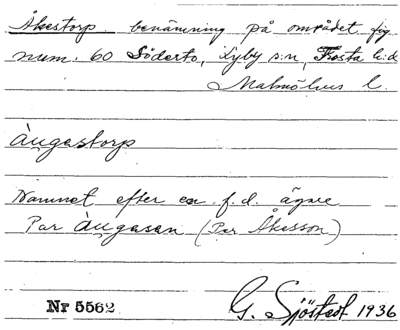 Åkestorp benämning på området fig
num. 60 Söderto, Xyby s:n, Frosta h:d
Malmöhus l.
Àu̯gastorp
Namnet efter en f.d. ägare
Par Àu̯gasan (Per Åkesson)
Nr 5562 G. Sjöstedt 1936